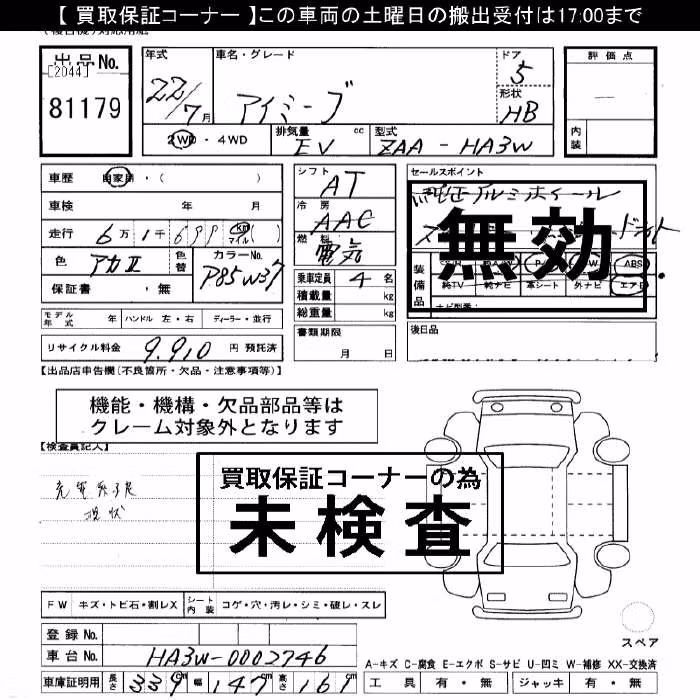 【 買取保証コーナー 】この車両の土曜日の搬出受付は17:00まで
出品No.
[2044]
81179
年式 22/7月
車名・グレード アイミーブ
ドア 5
形状 HB
2WD・4WD
排気量 EV cc
型式 ZAA-HA3W
評価点
内装
車歴 自家用・( )
車検 年 月
走行 6万1千699 (km マイル)( )
色 アカII 色替 カラーNo. P85W37
保証書 ・無
シフト AT
冷房 AAC
燃料 電気
乗車定員 4名
積載量 kg
総重量 kg
セールスポイント
純正アルミホイール
無効
装備品
ABS
純TV 純ナビ 革シート 外ナビ エアB
モデル年式 年 ハンドル 左・右 ディーラー・並行
書類期限 月 日
後日品
リサイクル料金 9,910 円 預託済
【出品店申告欄(不良箇所・欠品・注意事項等)】
機能・機構・欠品部品等は
クレーム対象外となります
【検査員記入】
買取保証コーナーの為
未検査
現状
FW キズ・トビ石・割レX シート内装 コゲ・穴・汚レ・シミ・破レ・スレ
登録No.
車台No. HA3W-0002746
車庫証明用 長さ 339cm 幅 147cm 高さ 161
スペア
A-キズ C-腐食 E-エクボ S-サビ U-凹ミ W-補修 XX-交換済
工具 有・無 ジャッキ 有・無